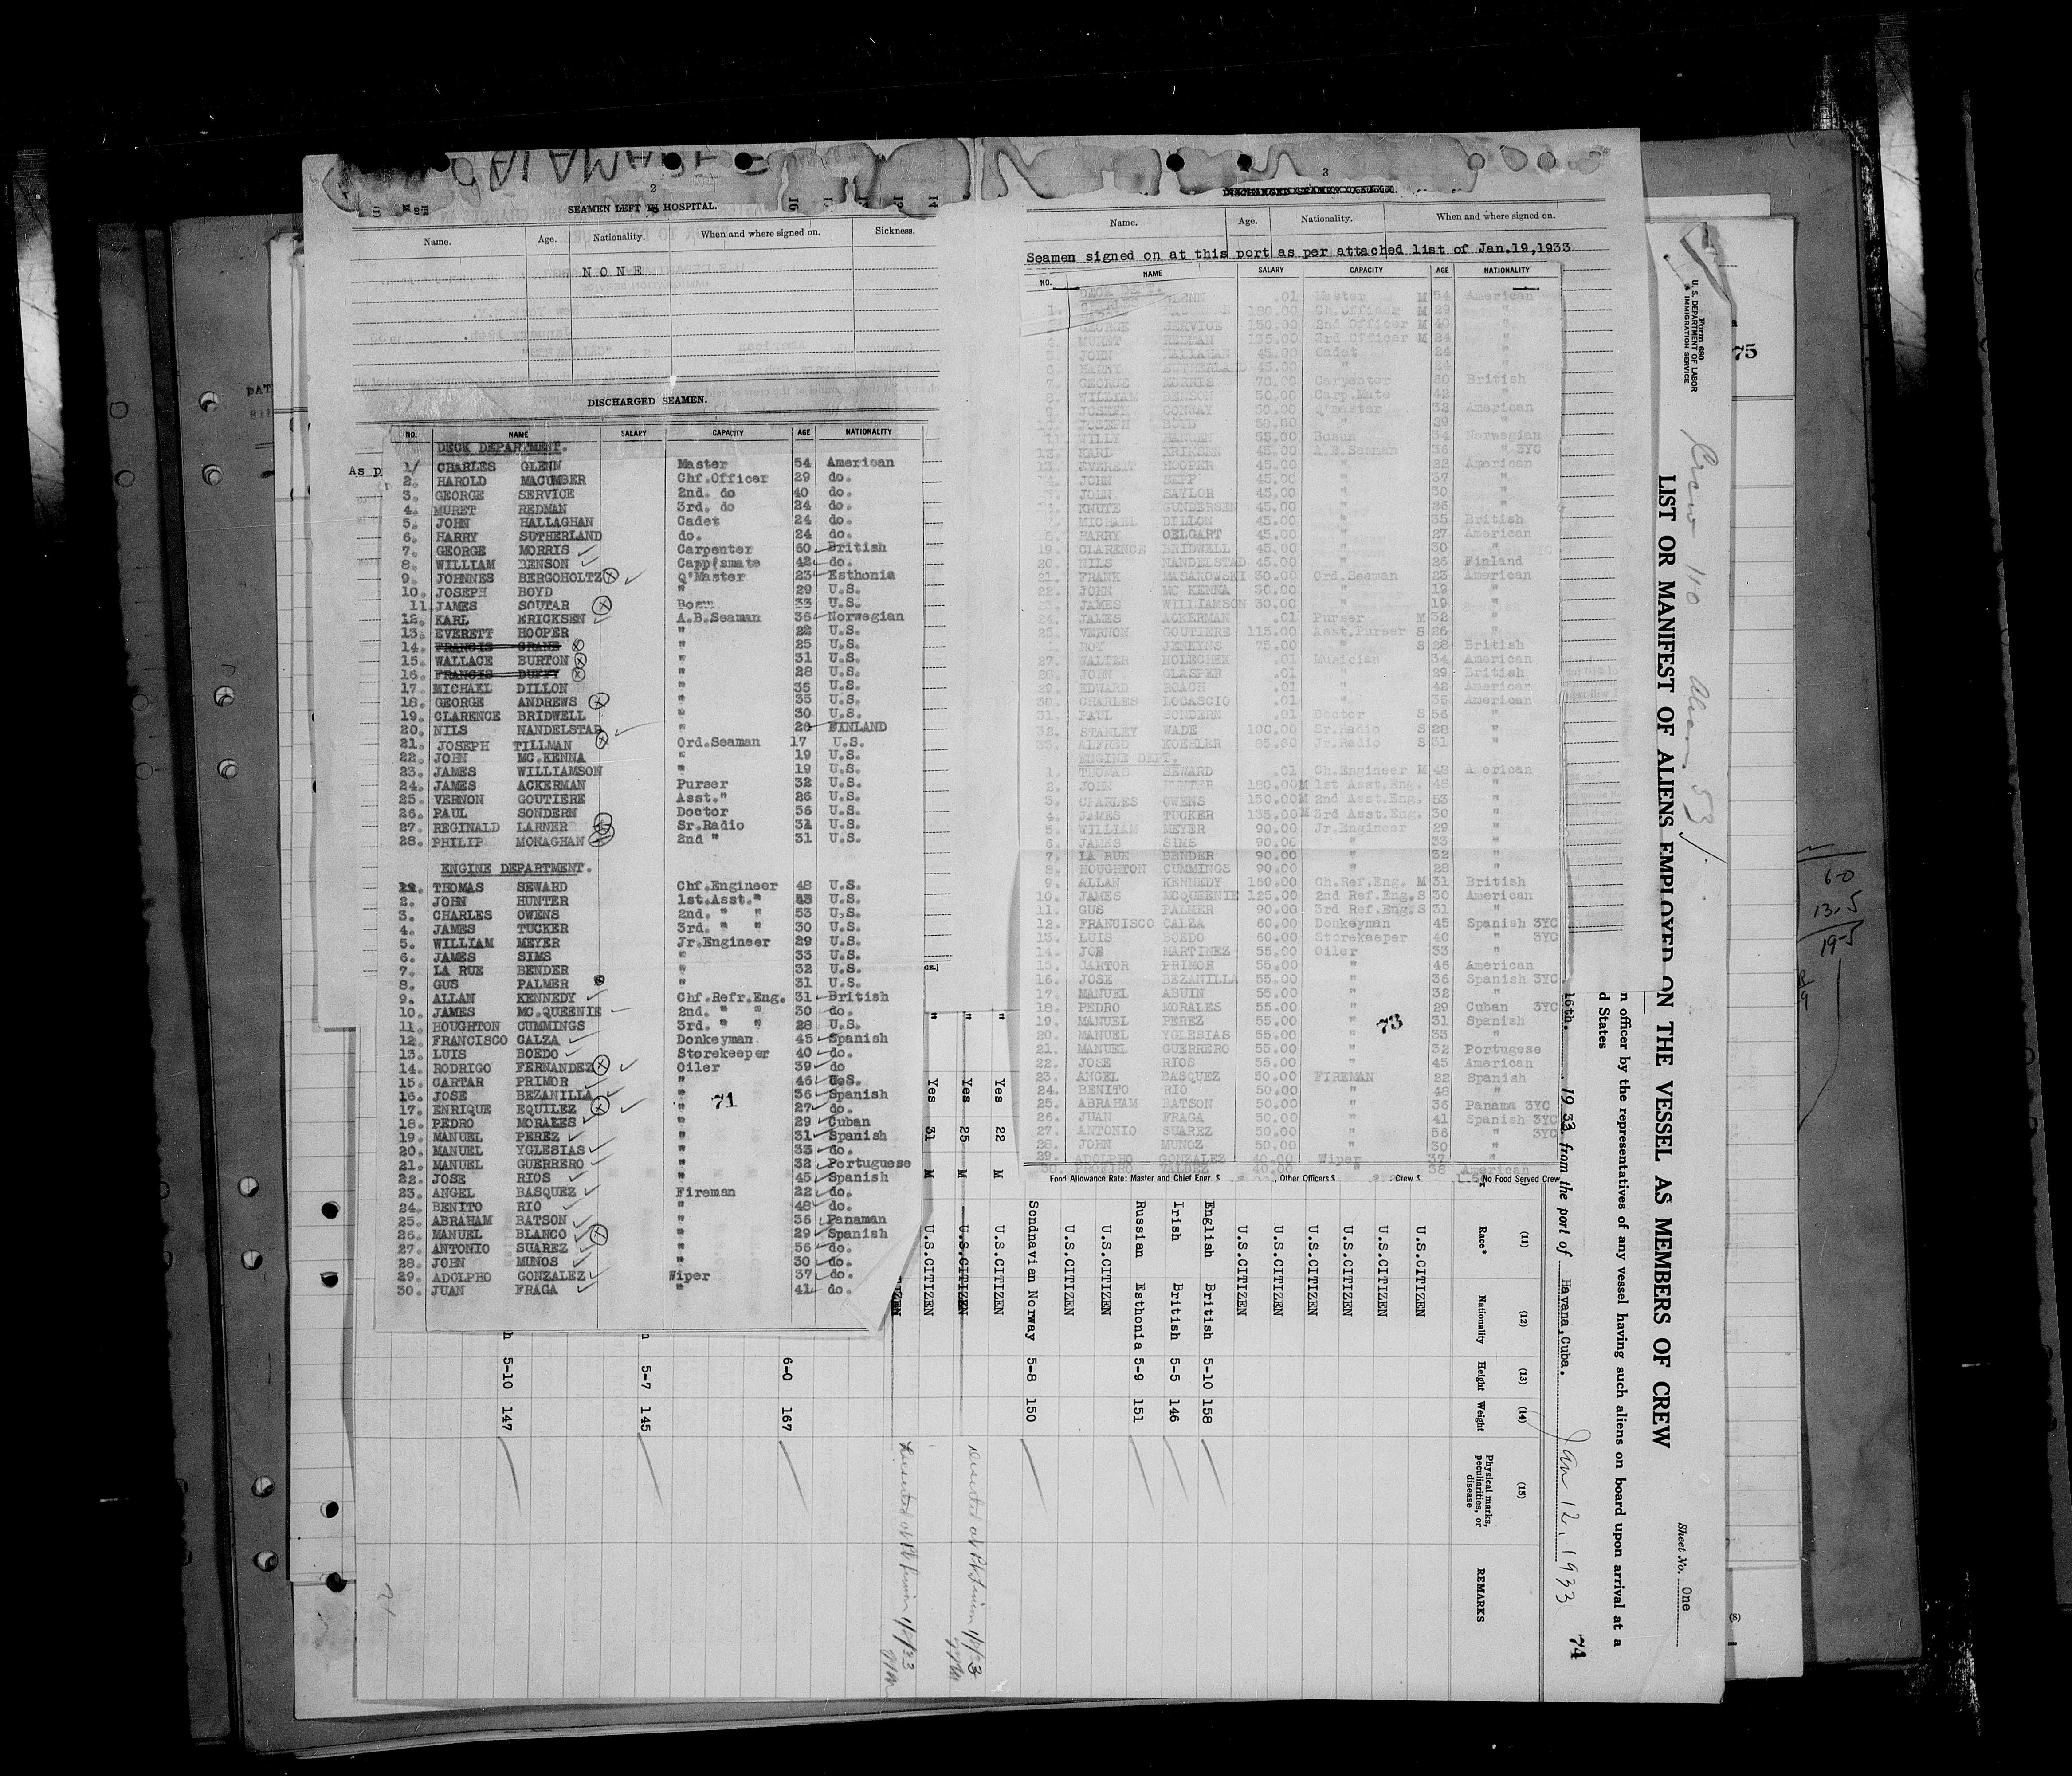 2
SEAMEN LEFT IN HOSPITAL.
Name. Age. Nationality. When and where signed on. Sickness.
NONE
DISCHARGED SEAMEN.
As p
NO. NAME SALARY CAPACITY AGE NATIONALITY
DECK DEPARTMENT.
1/ CHARLES GLENN Master 54 American
2. HAROLD MACUMBER Chf.Officer 29 do.
3. GEORGE SERVICE 2nd. do 40 do.
4. MURET REDMAN 3rd. do 24 do.
5. JOHN HALLAGHAN Cadet 24 do.
6. HARRY SUTHERLAND do. 24 do.
7. GEORGE MORRIS Carpenter 60 British
8. WILLIAM BENSON Carp/smate 42 do.
9. JOHNNES BERGOHOLTZ Q'Master 23 Esthonia
10. JOSEPH BOYD " 29 U.S.
11. JAMES SOUTAR Bosn. 33 U.S.
12. KARL ERICKSEN A.B.Seaman 36 Norwegian
13. EVERETT HOOPER " 22 U.S.
14. FRANCIS CRANE " 25 U.S.
15. WALLACE BURTON " 31 U.S.
16. FRANCIS DUFFY " 28 U.S.
17. MICHAEL DILLON " 35 U.S.
18. GEORGE ANDREWS " 35 U.S.
19. CLARENCE BRIDWELL " 30 U.S.
20. NILS NANDELSTAD " 26 FINLAND
21. JOSEPH TILLMAN Ord.Seaman 17 U.S.
22. JOHN MC.KENNA " 19 U.S.
23. JAMES WILLIAMSON " 19 U.S.
24. JAMES ACKERMAN Purser 32 U.S.
25. VERNON GOUTIERE Asst." 26 U.S.
26. PAUL SONDERN Doctor 56 U.S.
27. REGINALD LARNER Sr.Radio 31 U.S.
28. PHILIP MONAGHAN 2nd " 31 U.S.
ENGINE DEPARTMENT.
1. THOMAS SEWARD Chf.Engineer 48 U.S.
2. JOHN HUNTER 1st.Asst." U.S.
3. CHARLES OWENS 2nd. " " 53 U.S.
4. JAMES TUCKER 3rd. " " 30 U.S.
5. WILLIAM MEYER Jr.Engineer 29 U.S.
6. JAMES SIMS " 33 U.S.
7. LA RUE BENDER " 32 U.S.
8. GUS PALMER " 31 U.S.
9. ALLAN KENNEDY Chf.Refr.Eng. 31 British
10. JAMES MC.QUEENIE 2nd. " " 30 do.
11. HOUGHTON CUMMINGS 3rd. " " 28 U.S.
12. FRANCISCO CALZA Donkeyman 45 Spanish
13. LUIS BOEDO Storekeeper 40 do.
14. RODRIGO FERNANDEZ Oiler 39 do
15. CARTAR PRIMOR " 46 U.S.
16. JOSE BEZANILLA " 36 Spanish
17. ENRIQUE EQUILEZ " 27 do.
18. PEDRO MORALES " 29 Cuban
19. MANUEL PEREZ " 31 Spanish
20. MANUEL YGLESIAS " 33 do.
21. MANUEL GUERRERO " 32 Portuguese
22. JOSE RIOS " 45 Spanish
23. ANGEL BASQUEZ Fireman 22 do.
24. BENITO RIO " 48 do.
25. ABRAHAM BATSON " 36 Panaman
26. MANUEL BLANCO " 29 Spanish
27. ANTONIO SUAREZ " 56 do.
28. JOHN MUNOS " 30 do.
29. ADOLPHO GONZALEZ Wiper 37 do.
30. JUAN FRAGA " 41 do.
71
3
DISCHARGED SEAMEN
Name. Age. Nationality. When and where signed on.
Seamen signed on at this port as per attached list of Jan.19,1933
NO. NAME SALARY CAPACITY AGE NATIONALITY
DECK DEPT.
1. CHARLES GLENN .01 Master M 54 American
180.00 Ch.Officer M 29 "
GEORGE SERVICE 150.00 2nd Officer M 40 "
4. MURET REDMAN 135.00 3rd.Officer M 24 "
JOHN HALLAGHAN 45.00 Cadet 24 "
6. HARRY SUTHERLAND 45.00 " 24 "
7. GEORGE MORRIS 70.00 Carpenter 60 British
WILLIAM BENSON 50.00 Carp.Mate 42 "
9. JOSEPH CONWAY 50.00 Q'master 32 American
JOSEPH BOYD 50.00 " 29 "
11. WILLY HANSEN 55.00 Bosun 34 Norwegian
12. KARL ERIKSEN 45.00 A.B.Seaman 36 " 3YC
13. EVERETT HOOPER 45.00 " 22 American
JOHN SEPP 45.00 " 37 "
JOHN SAYLOR 45.00 " 30 "
KNUTE GUNDERSEN 45.00 " 26 "
MICHAEL DILLON 45.00 " 35 British
HARRY OELGART 45.00 " 27 American
19. CLARENCE BRIDWELL 45.00 " 30 "
20. NILS NANDELSTAD 45.00 " 26 Finland
21. FRANK MASAKOWSKI 30.00 Ord.Seaman 23 American
22. JOHN MC KENNA 30.00 " 19 "
JAMES WILLIAMSON 30.00 " 19 "
24. JAMES ACKERMAN .01 Purser M 32 "
25. VERNON GOUTIERE 115.00 Asst.Purser S 26 "
ROY JENKYNS 75.00 " S 28 British
27. WALTER HOLECHEK .01 Musician 34 American
28. JOHN GLASPER .01 " 29 British
29. EDWARD ROACH .01 " 42 American
30. CHARLES LOCASCIO .01 " 35 American
31. PAUL SONDERN .01 Doctor S 56 "
32. STANLEY WADE 100.00 Sr.Radio S 28 "
33. ALFRED KOEHLER 85.00 Jr.Radio S 31 "
ENGINE DEPT.
1. THOMAS SEWARD .01 Ch.Engineer M 48 American
2. JOHN HUNTER 180.00M 1st Asst.Eng. 48 "
3. CHARLES OWENS 150.00M 2nd Asst.Eng. 53 "
4. JAMES TUCKER 135.00M 3rd Asst.Eng. 30 "
5. WILLIAM MEYER 90.00 Jr.Engineer 29 "
6. JAMES SIMS 90.00 " 33 "
7. LA RUE BENDER 90.00 " 32 "
8. HOUGHTON CUMMINGS 90.00 " 28 "
9. ALLAN KENNEDY 160.00 Ch.Ref.Eng. M 31 British
10. JAMES MCQUEENIE 125.00 2nd Ref.Eng.S 30 American
11. GUS PALMER 90.00 3rd Ref.Eng.S 31 "
12. FRANCISCO CALZA 60.00 Donkeyman 45 Spanish 3YC
13. LUIS BOEDO 60.00 Storekeeper 40 " 3YC
14. JOE MARTINEZ 55.00 Oiler 33 "
15. CARTOR PRIMOR 55.00 " 46 American
16. JOSE BEZANILLA 55.00 " 36 Spanish 3YC
17. MANUEL ABUIN 55.00 " 32 "
18. PEDRO MORALES 55.00 " 29 Cuban 3YC
19. MANUEL PEREZ 55.00 " 31 Spanish
20. MANUEL YGLESIAS 55.00 " 33 "
21. MANUEL GUERRERO 55.00 " 32 Portugese
22. JOSE RIOS 55.00 " 45 American
23. ANGEL BASQUEZ 50.00 FIREMAN 22 Spanish
24. BENITO RIO 50.00 " 48 "
25. ABRAHAM BATSON 50.00 " 36 Panama 3YC
26. JUAN FRAGA 50.00 " 41 Spanish 3YC
27. ANTONIO SUAREZ 50.00 " 56 " 3YC
28. JOHN MUNOZ 50.00 " 30 "
29. ADOLPHO GONZALEZ 40.00 Wiper 37 "
30. PROFIRO VALDEZ 40.00 " 38 American
73
Food Allowance Rate: Master and Chief Engr. $ , Other Officers $ , Crew $ , No Food Served Crew
Form 680
U. S. DEPARTMENT OF LABOR
IMMIGRATION SERVICE
Crew 110 Alien 53
LIST OR MANIFEST OF ALIENS EMPLOYED ON THE VESSEL AS MEMBERS OF CREW
Sheet No. One
n officer by the representatives of any vessel having such aliens on board upon arrival at a
d States
16th. 1933 from the port of Havana,Cuba. Jan 12, 1933
74
(11) (12) (13) (14) (15)
Race* Nationality Height Weight Physical marks, peculiarities, or disease REMARKS
U.S.CITIZEN
U.S.CITIZEN
U.S.CITIZEN
U.S.CITIZEN
U.S.CITIZEN
U.S.CITIZEN
English British 5-10 158
Irish British 5-5 146
Russian Esthonia 5-9 151
U.S.CITIZEN
U.S.CITIZEN
Scndnavian Norway 5-8 150
" Yes 22 M U.S.CITIZEN
" Yes 25 M U.S.CITIZEN
" Yes 31 M U.S.CITIZEN
6-0 167
5-7 145
h 5-10 147
75
60
13.5
19-5